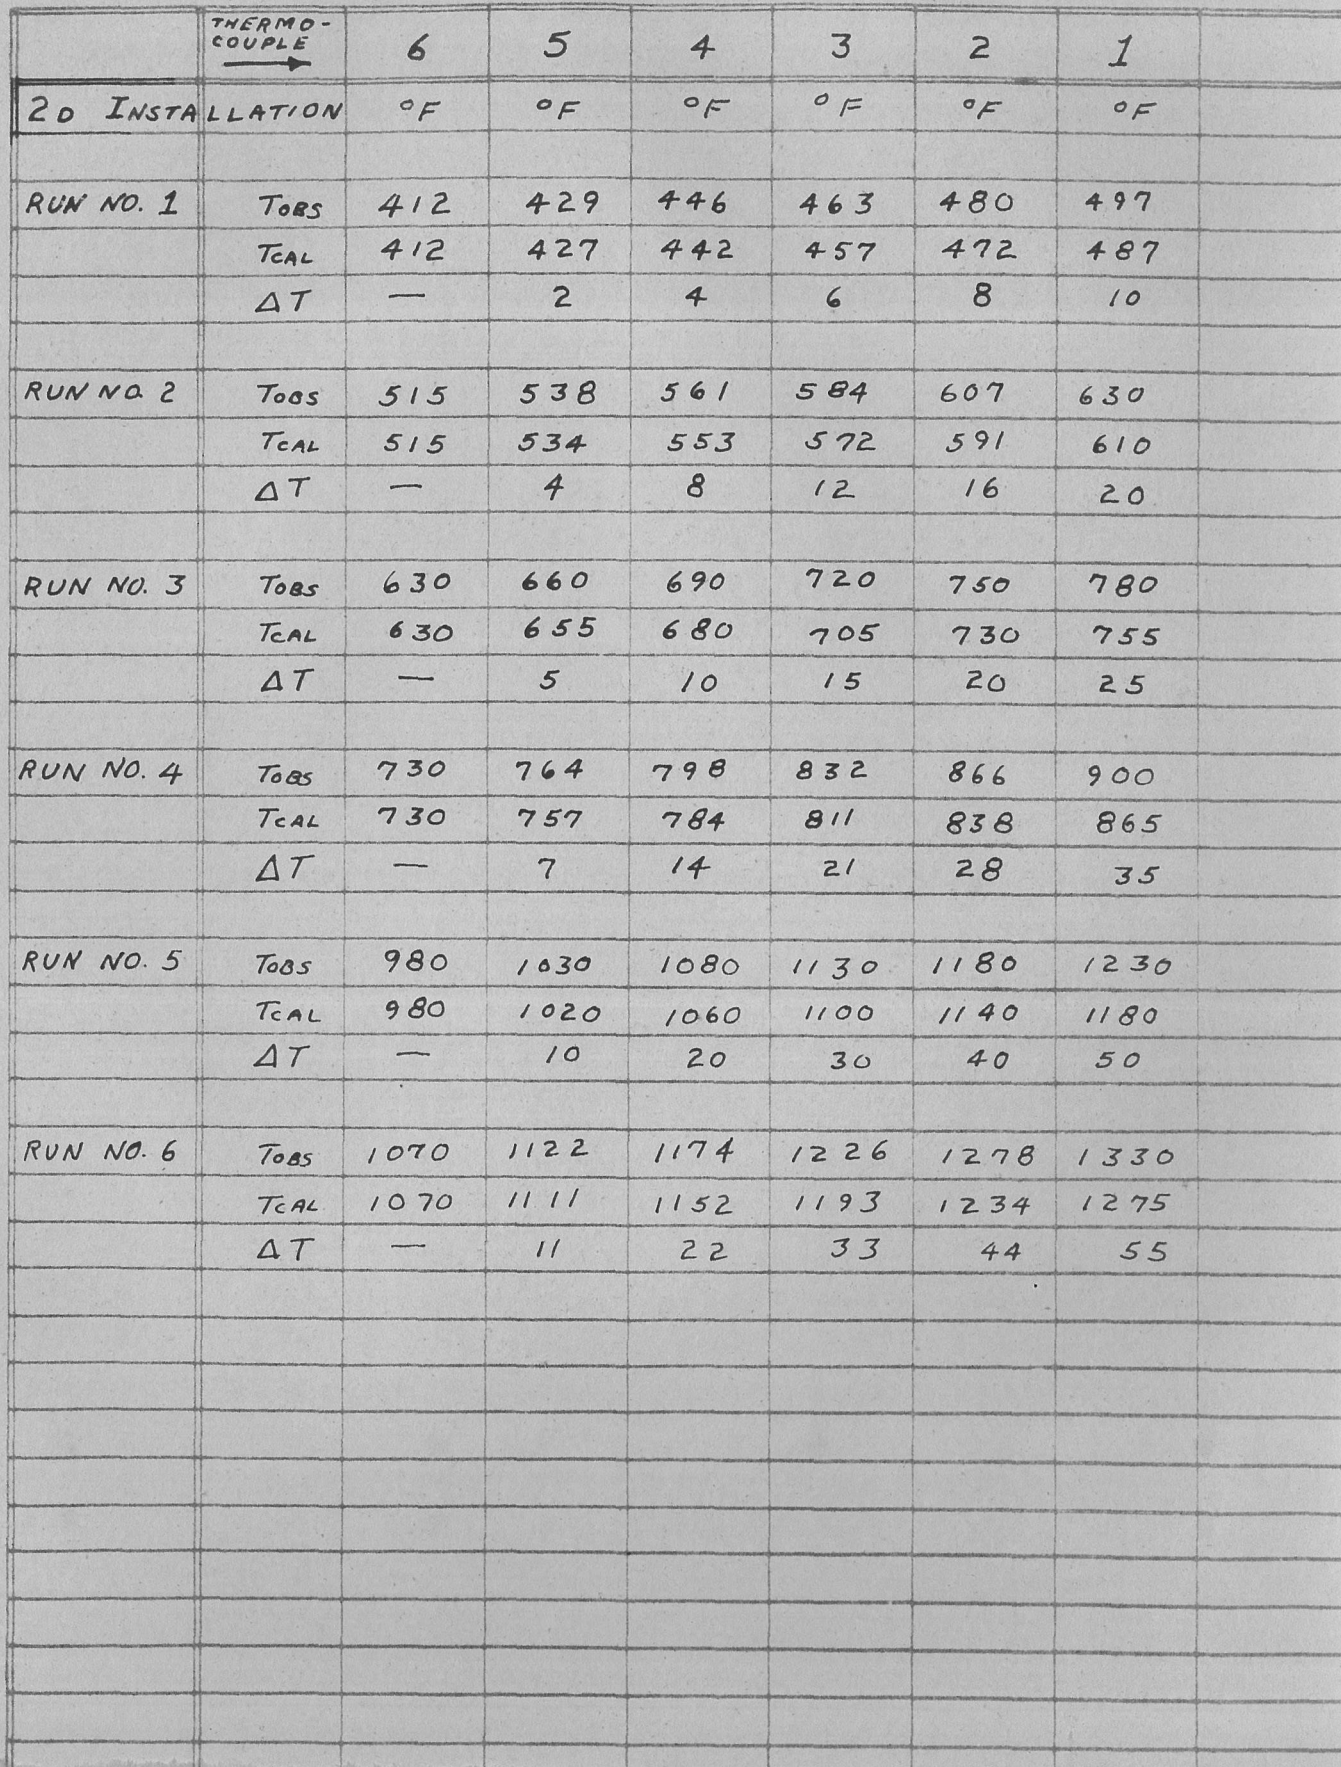 THERMO-
COUPLE → 6 5 4 3 2 1
2D INSTALLATION °F °F °F °F °F °F
RUN NO. 1 TOBS 412 429 446 463 480 497
TCAL 412 427 442 457 472 487
ΔT — 2 4 6 8 10
RUN NO. 2 TOBS 515 538 561 584 607 630
TCAL 515 534 553 572 591 610
ΔT — 4 8 12 16 20
RUN NO. 3 TOBS 630 660 690 720 750 780
TCAL 630 655 680 705 730 755
ΔT — 5 10 15 20 25
RUN NO. 4 TOBS 730 764 798 832 866 900
TCAL 730 757 784 811 838 865
ΔT — 7 14 21 28 35
RUN NO. 5 TOBS 980 1030 1080 1130 1180 1230
TCAL 980 1020 1060 1100 1140 1180
ΔT — 10 20 30 40 50
RUN NO. 6 TOBS 1070 1122 1174 1226 1278 1330
TCAL 1070 1111 1152 1193 1234 1275
ΔT — 11 22 33 44 55